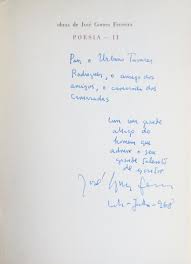 obras de José Gomes Ferreira
POESIA – II
Para o Urbano Tavares
Rodrigues, o amigo dos
amigos, o camarada dos
camaradas
com um grande
abraço do
homem que
admira o seu
grande talento
de escritor
José Gomes Ferreira